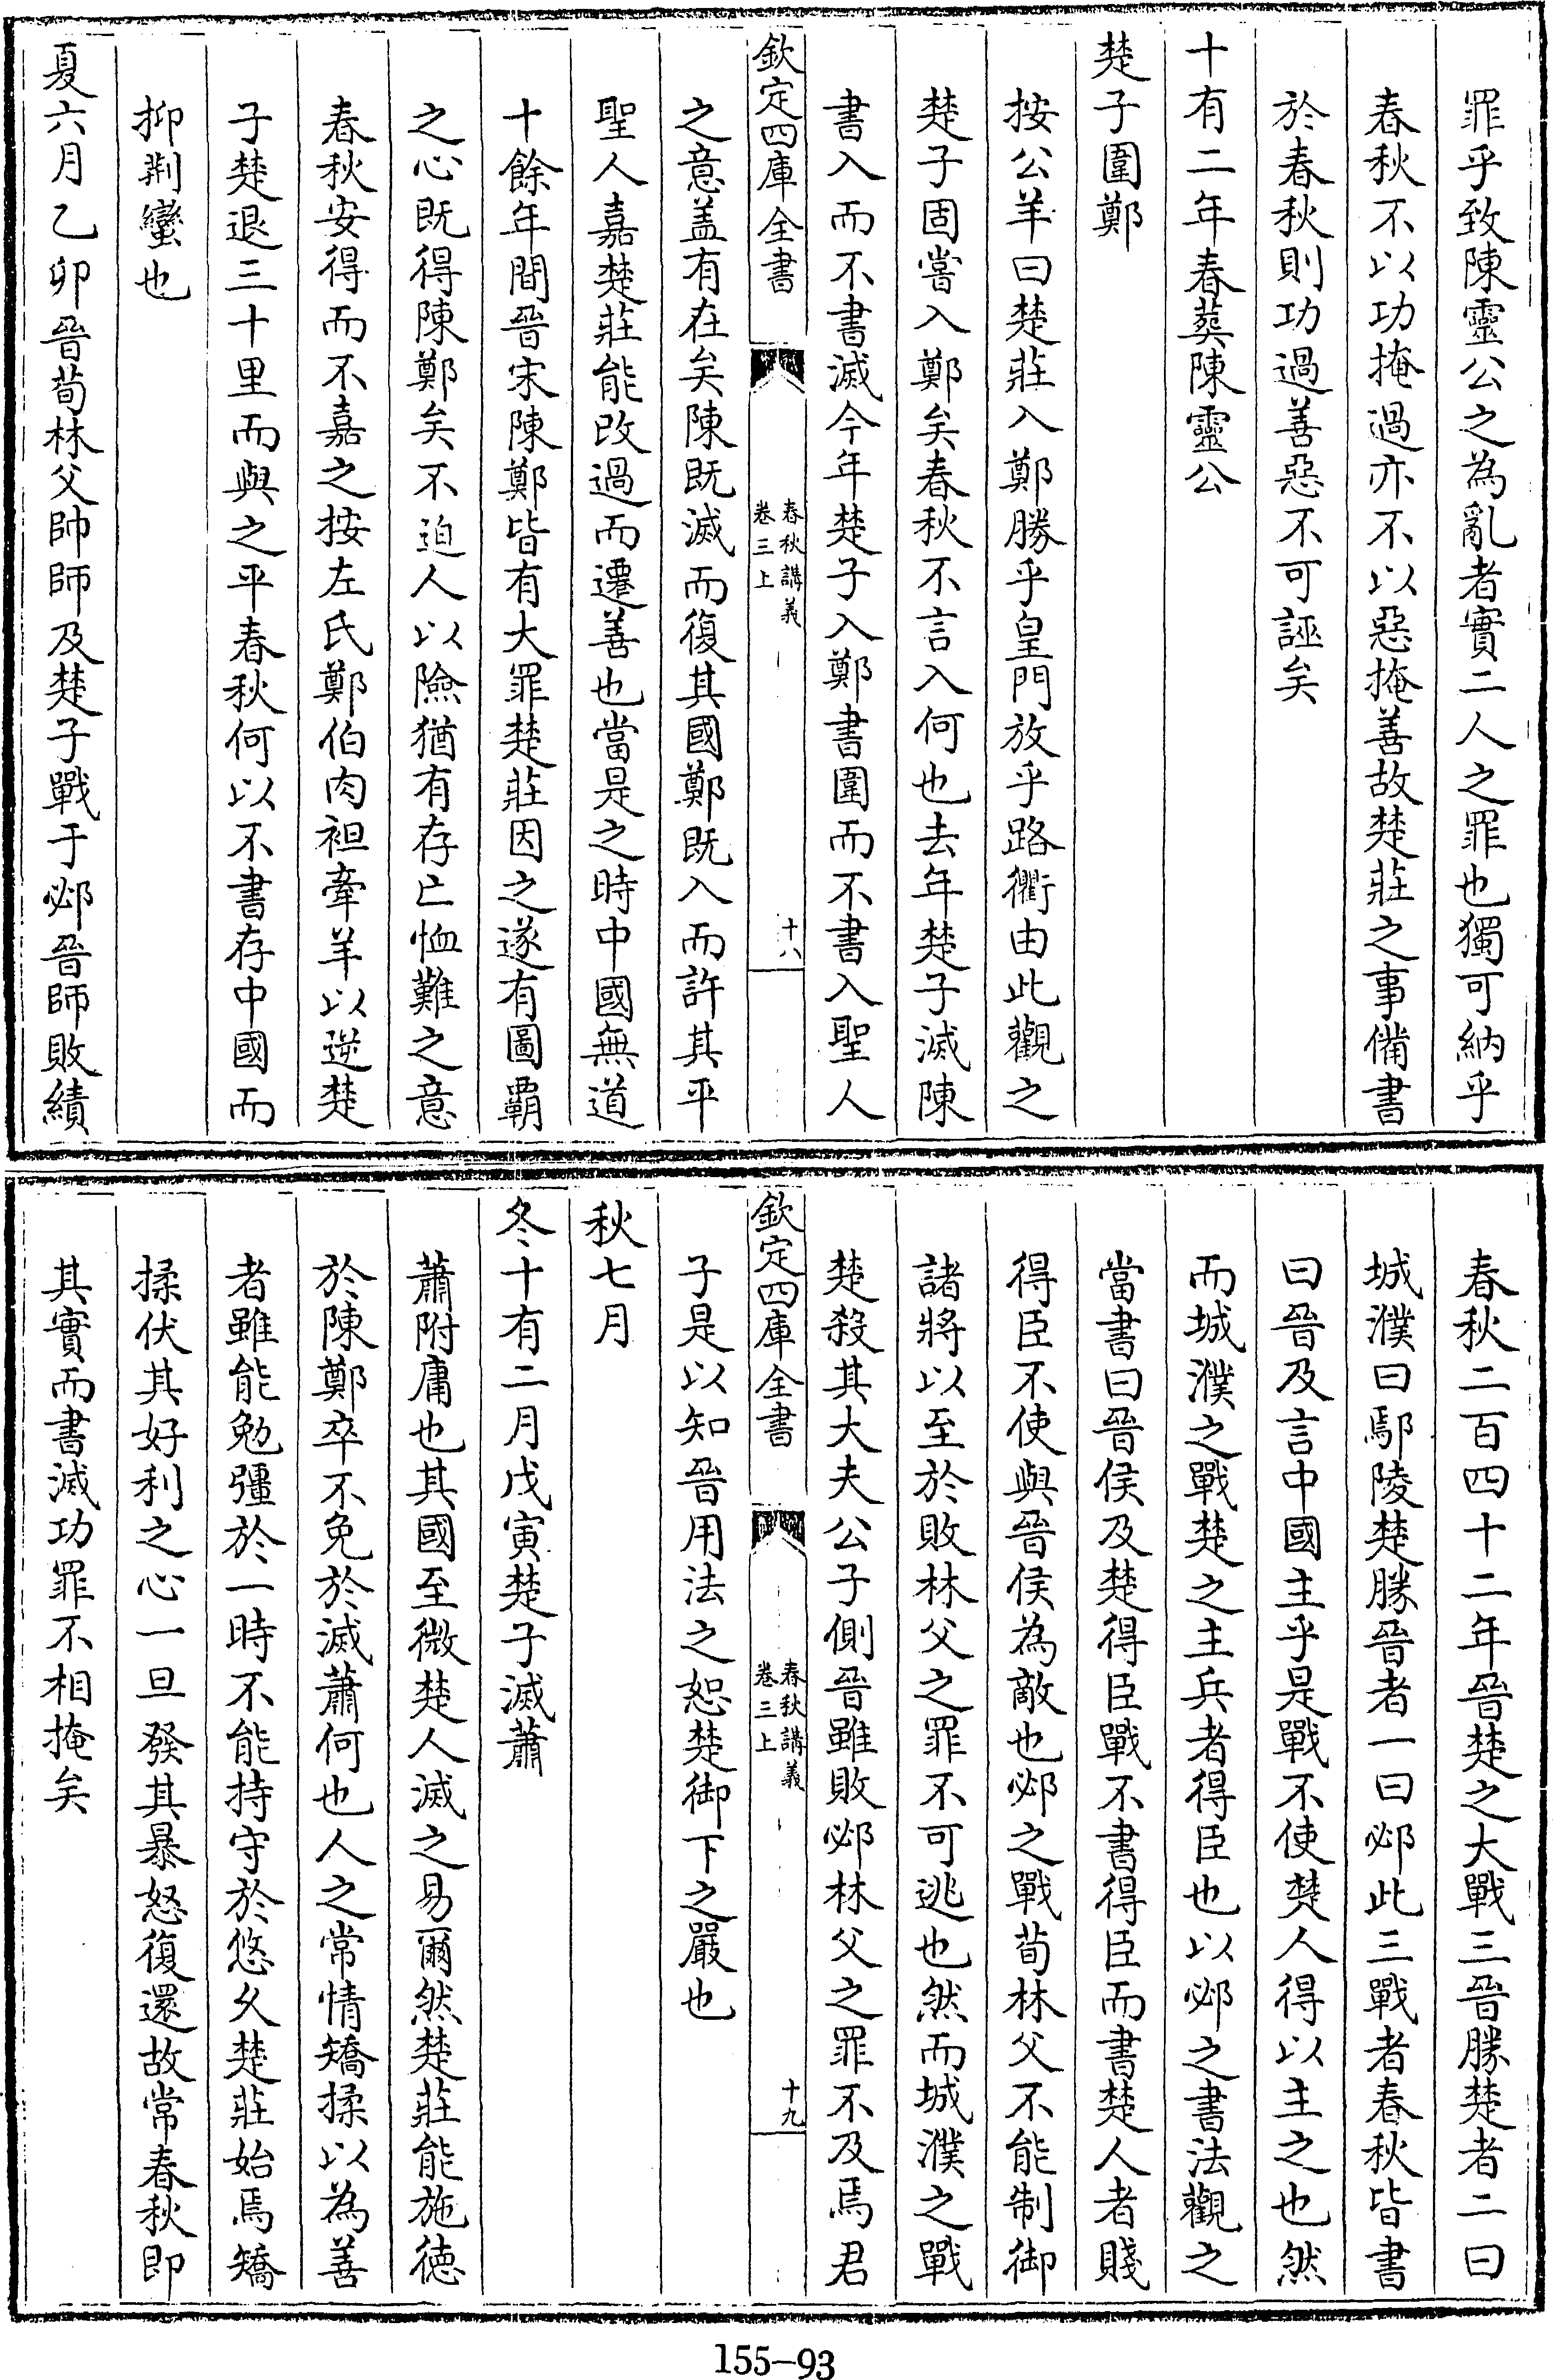 罪乎致陳靈公之為亂者實二人之罪也獨可納乎
春秋不以功掩過亦不以惡掩善故楚莊之事備書
於春秋則功過善惡不可誣矣
十有二年春葬陳靈公
楚子圍鄭
按公羊曰楚莊入鄭勝乎皇門放乎路衢由此觀之
楚子固嘗入鄭矣春秋不言入何也去年楚子滅陳
書入而不書滅今年楚子入鄭書圍而不書入聖人
欽定四庫全書
春秋講義
卷三上
十八
之意盖有在矣陳既滅而復其國鄭既入而許其平
聖人嘉楚莊能改過而遷善也當是之時中國無道
十餘年間晉宋陳鄭皆有大罪楚莊因之遂有圖霸
之心既得陳鄭矣不迫人以險猶有存亡恤難之意
春秋安得而不嘉之按左氏鄭伯肉袒牽羊以逆楚
子楚退三十里而與之平春秋何以不書存中國而
抑荆蠻也
夏六月乙卯晉荀林父帥師及楚子戰于邲晉師敗績
春秋二百四十二年晉楚之大戰三晉勝楚者二曰
城濮曰鄢陵楚勝晉者一曰邲此三戰者春秋皆書
曰晉及言中國主乎是戰不使楚人得以主之也然
而城濮之戰楚之主兵者得臣也以邲之書法觀之
當書曰晉侯及楚得臣戰不書得臣而書楚人者賤
得臣不使與晉侯為敵也邲之戰荀林父不能制御
諸將以至於敗林父之罪不可逃也然而城濮之戰
楚殺其大夫公子側晉雖敗邲林父之罪不及焉君
欽定四庫全書
春秋講義
卷三上
十九
子是以知晉用法之恕楚御下之嚴也
秋七月
冬十有二月戊寅楚子滅蕭
蕭附庸也其國至微楚人滅之易爾然楚莊能施徳
於陳鄭卒不免於滅蕭何也人之常情矯揉以為善
者雖能勉彊於一時不能持守於悠久楚莊始焉矯
揉伏其好利之心一旦發其暴怒復還故常春秋即
其實而書滅功罪不相掩矣
155-93